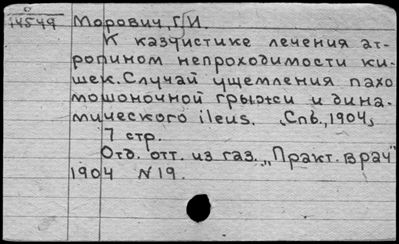 14549 Морович, Г. И.
К казуистике лечения ат-
ропином непроходимости ки-
шек. Случай ущемления пахо
мошоночной грыжи и дина-
мического ileus. Спб., 1904,
7 стр.
Отд. отт. из газ. „Практ. врач"
1904 N 19.